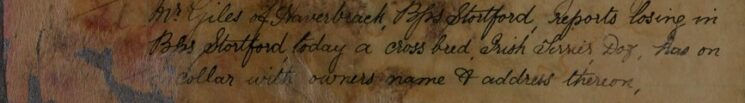 Mr Giles of Haverbrack, Bps Stortford, reports losing in
Bps Stortford, today a cross bred, Irish Terrier Dog, has on
collar with owners name & address thereon,